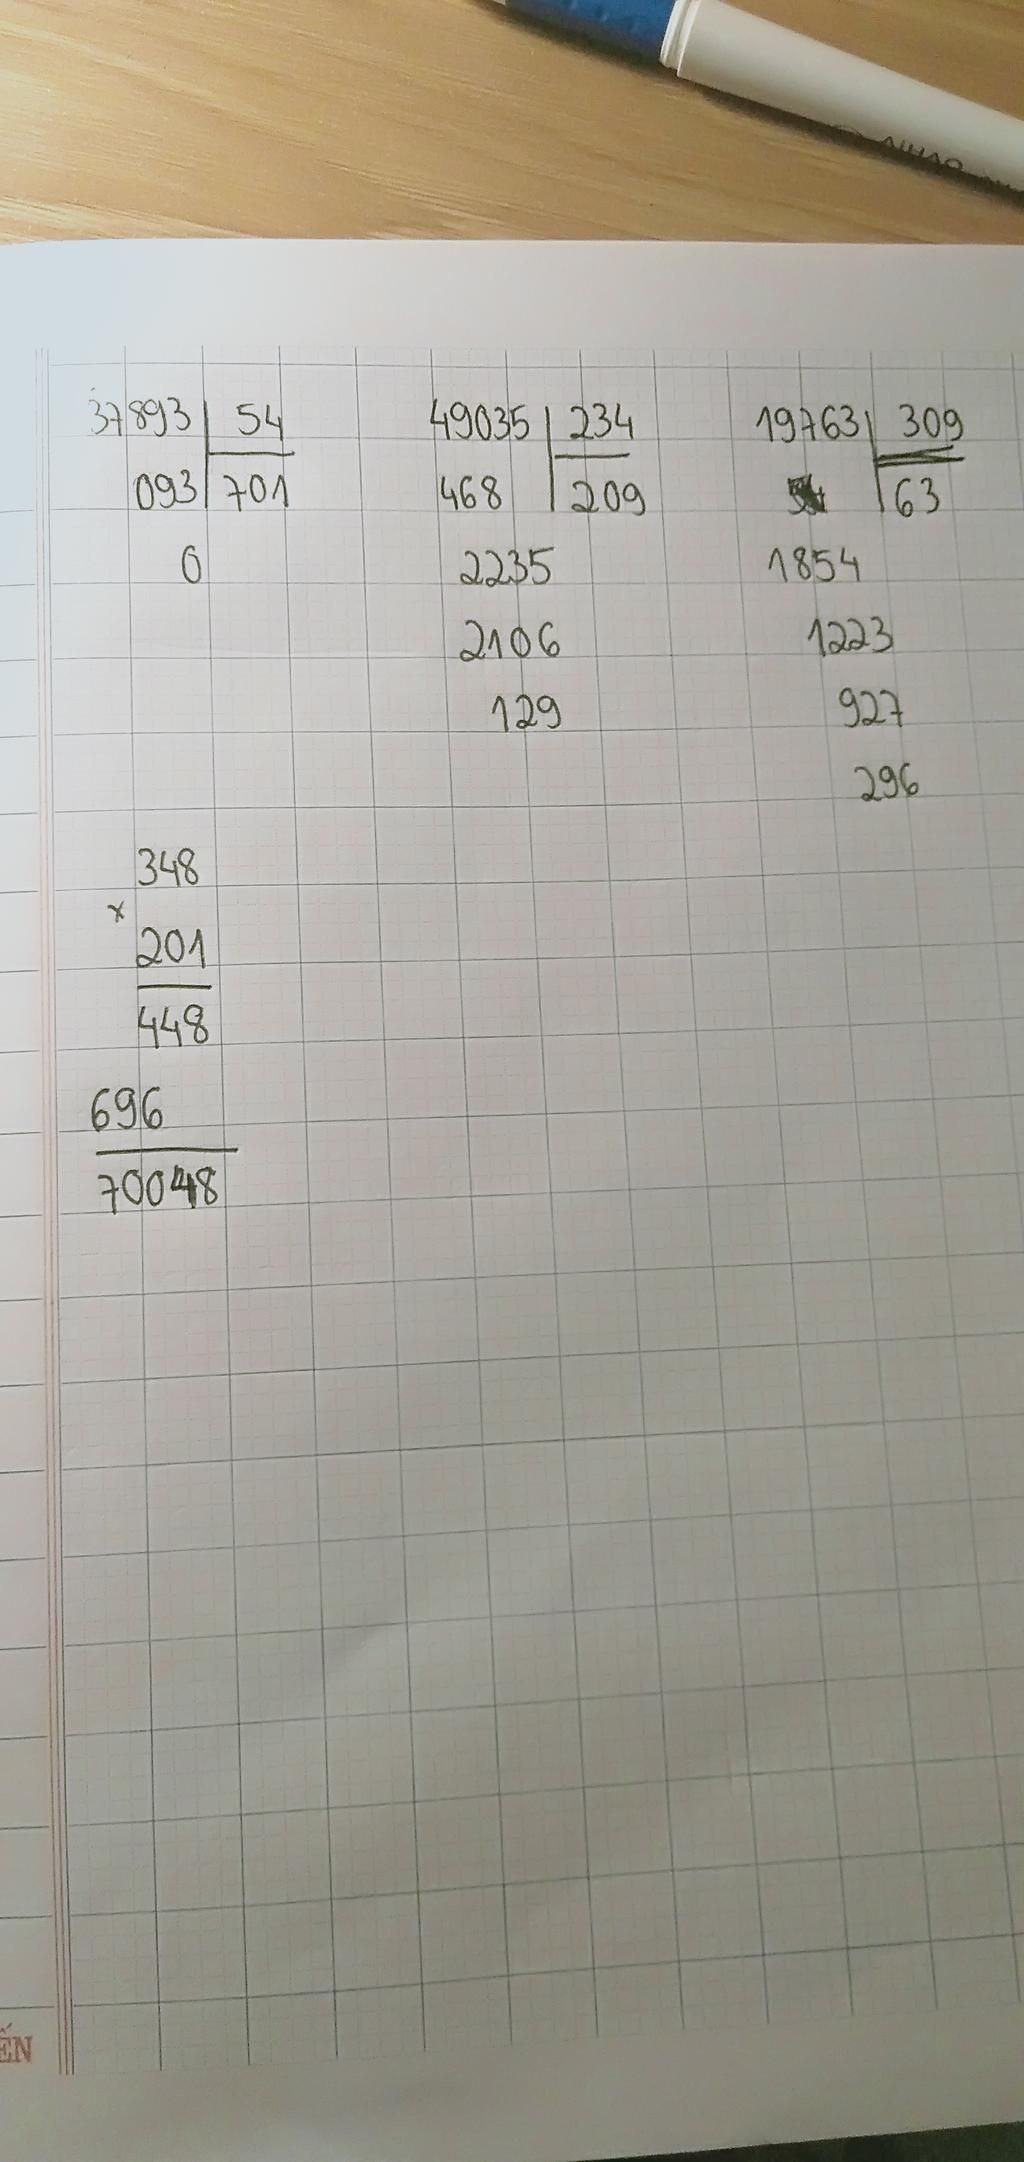 37893 54
093 701
0
49035 234
468 209
2235
2106
129
19763 309
63
1854
1223
927
296
348
x
201
448
696
70048
ẾN